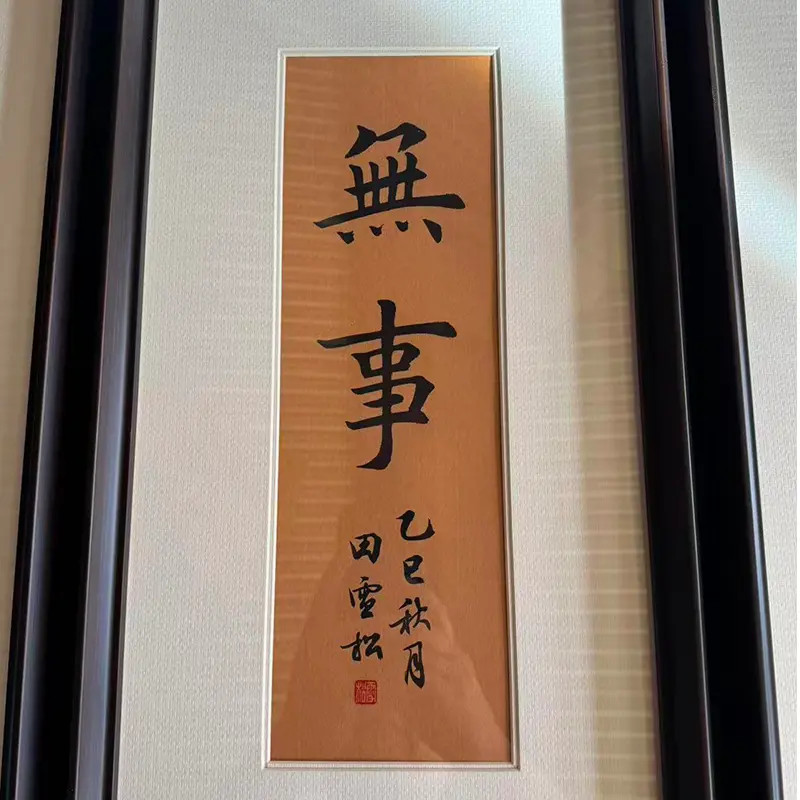 無事
乙巳秋月
田雪松